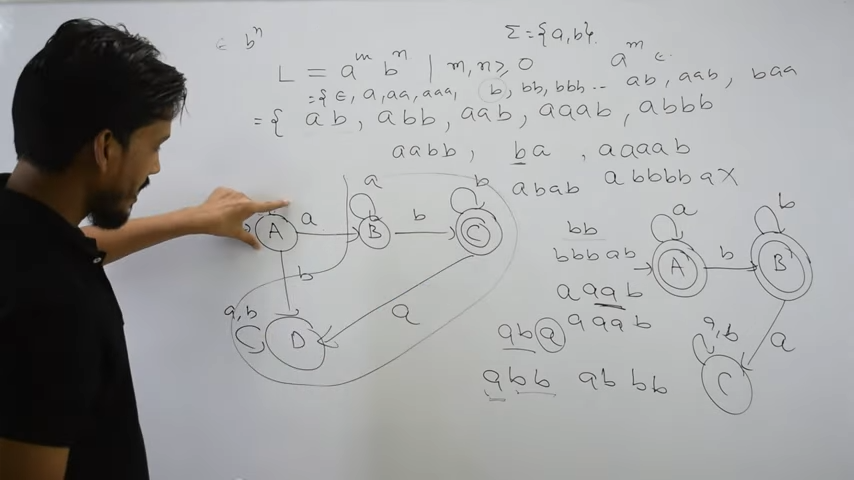 ∈ b^n
Σ = {a, b}.
L = a^m b^n | m, n ≥ 0
a^m ∈
= { ∈, a, aa, aaa, b, bb, bbb ... ab, aab, baa
= { ab, abb, aab, aaab, abbb
aabb, ba, aaaab
abab abbbbaX
a
b
A a B b C
b
a
D
a,b
bb
bbbab
aaab
aba aaab
abb abbb
a
b
A b B
a
a,b
C